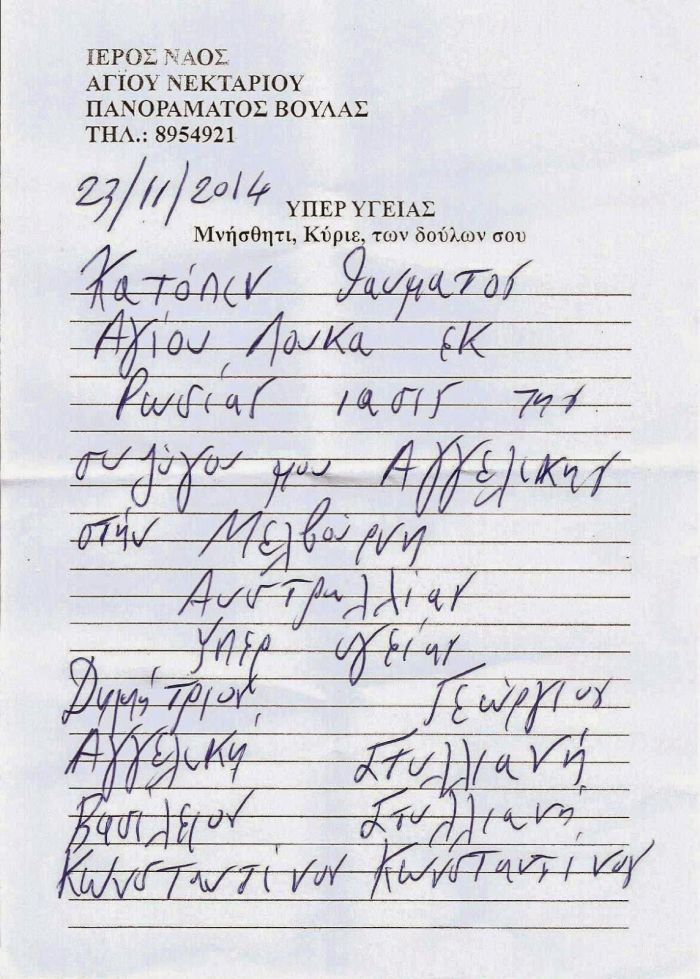 ΙΕΡΟΣ ΝΑΟΣ
ΑΓΪΟΥ ΝΕΚΤΑΡΙΟΥ
ΠΑΝΟΡΑΜΑΤΟΣ ΒΟΥΛΑΣ
ΤΗΛ.: 8954921
23/11/2014
ΥΠΕΡ ΥΓΕΙΑΣ
Μνήσθητι, Κύριε, των δούλων σου
Κατόπιν θαυματος
Αγίου Λουκα εκ
Ρωσίας ιασις της
συζύγου μου Αγγελικης
στήν Μελβούρνη
Αυστραλλίας
Υπερ υγείας
Δημήτριος Γεώργιος
Αγγελική Στυλλιανή
Βασιλειος Στυλλιανή
Κωνσταντίνος Κωνσταντίνος